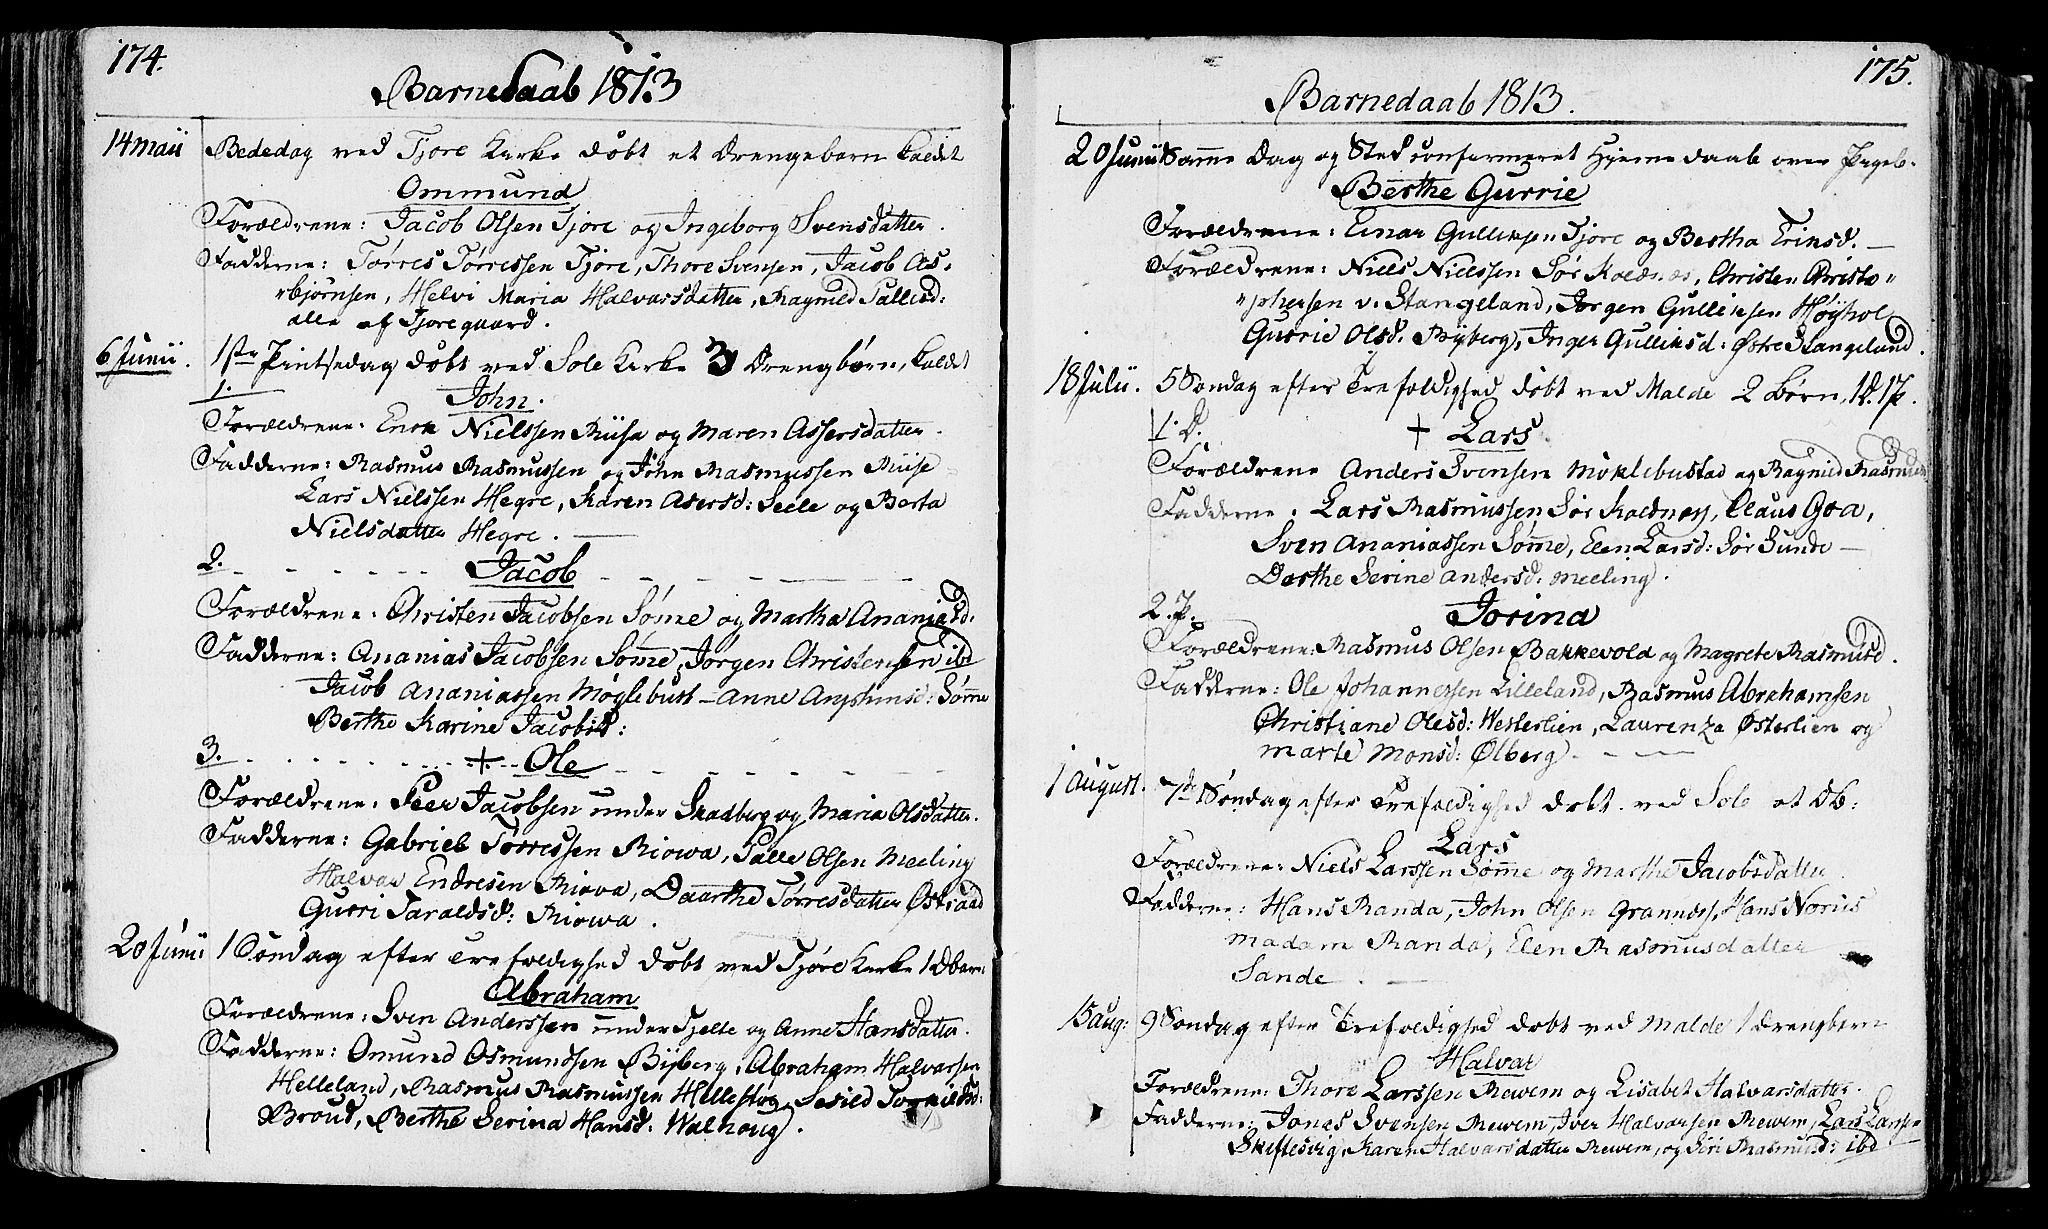 174.
Barnedaab 1813
14 Maii Bededag ved Tjore Kirke døbt et Drengebarn kaldet
Ommund
Forældrene: Jacob Olsen Tjore og Ingeborg Svensdatter.
Fadderne: Tørres Tørressen Tjore, Thore Svensen, Jacob As-
"bjørnsen, Helvi Maria Halvarsdatter, Ragnild Pallesd:
alle af Tjoregaard.
6 Junii. 1ste Pintsedag døbt ved Sole Kirke 3 Drengbørn, kaldet
1. John.
Forældrene: Enok Nielssen Riise og Maren Assersdatter.
Fadderne: Rasmus Rasmussen og John Rasmussen Riise
Lars Nielssen Hegre, Karen Asersd: Seele og Berta
Nielsdatter Hegre.
2. Jacob
Forældrene: Christen Jacobsen Sømme og Martha Ananiasd.
Fadderne: Ananias Jacobsen Sømme, Jørgen Christensen ibd
Jacob Ananiassen Møglebust - Anne Sømme
Berthe Karine Jacobsd:
3. + Ole
Forældrene: Peer Jacobsen under Skadberg og Maria Olsdatter.
Fadderne: Gabriel Tørressen Riowa, Palle Olsen Meeling
Halvar Endresen Riova, Daarthe Tørresdatter Østraad
Gurri Taraldsd: Riowa.
20 Junii 1 Søndag efter Trefoldighed døbt ved Tjøre Kirke 1 Dbarn
Abraham
Forældrene: Sven Anderssen under Tjelte og Anne Hansdatter.
Fadderne: Omund Osmundsen Byberg, Abraham Halvorsen
Helleland, Rasmus Rasmussen Hellestøe, Sesild
Broud, Berthe Serina Hansd: Walhoug.
175.
Barnedaab 1813.
20 Junii Samme Dag og Sted confirmeret Hjemmedaab over Pigeb.
Berthe Gurrie
Forældrene: Einar Gulliksen Tjore og Bertha Eriksd.
Forældrene: Niels Nielssen Sør Kolnes, Christen Christo"
"phersen v. Stangeland, Jørgen Gulliksen Høyhol
Gurrie Olsd. Byberg, Inger Gulliksd: Østre Stangeland.
18 Julii. 5 Søndag efter Trefoldighed døbt ved Malde 2 Børn, 1D. 1P.
1. D. + Lars
Forældrene Anders Svensen Møklebustad og Ragnild Rasmusd
Fadderne: Lars Rasmussen Sør Kolnes, Claus Goa,
Sven Ananiassen Sømme, Elen Larsd: Sør Sunde
Dorthe Serine Andersd. Meeling.
2. P. Jorina
Forældrene: Rasmus Olsen Bakkevold og Magrete Rasmusd.
Fadderne: Ole Johannessen Lilleland, Rasmus Abrahamsen
Christiane Olesd: Westerlien, Laurenza Østerlien og
Marte Monsd: Ølberg.
1 August. 7de Søndag efter Trefoldighed døbt ved Sole et Db:
Lars
Forældrene: Niels Larssen Sømme og Marthe Jacobsdatter.
Fadderne: Hans Randa, John Olsen Grannes, Hans Norius
Madam Randa, Elen Rasmusdatter
Sande.
15 Aug: 9 Søndag efter Trefoldighed døbt ved Malde 1 Drengbarn
Halvar
Forældrene: Thore Larssen Rewem og Lisabet Halvarsdatter.
Fadderne: Jonas Svensen Rewem, Iver Halvarsen Rewem, Lars Larssen
Skiftesvig, Karen Halvarsdatter Rewem, og Siri Rasmusd: ibd